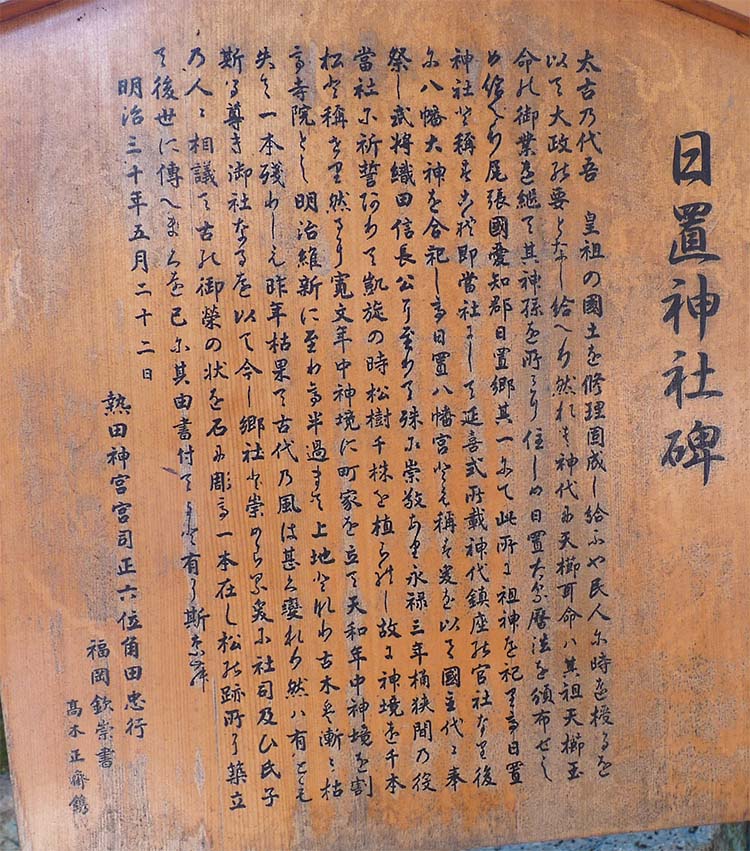 日置神社碑
太古乃代吾 皇祖の國土を修理固成し給ふや民人尓時を授るを
以て大政の要となし給へり然れとも神代尓天櫛耳命ハ其祖天櫛玉
命の御業を継て其神孫を所々に住しめ日置 暦法を頒布せし
め給へり尾張國愛知郡日置郷其一にて此所に祖神を祀りて日置
神社と称す是即當社にして延喜式所載神代鎮座の官社なり後
尓八幡大神を合祀して日置八幡宮とも稱す爰を以て國主代々奉
祭し武将織田信長公に至りて殊に崇敬あり永禄三年桶狭間乃役
當社尓祈誓ありて凱旋の時松樹千株を植られし故に神境を千本
松と稱せり然るに寛文年中神境に町家を立て天和年中神境を割
て寺院とし明治維新に至りて半過まて上地となり古木も漸々枯
失て一本残りしも昨年枯果て古代乃風は甚く變れり然ハ有とも
斯る尊き御社なるを以て今し郷社と崇めらる爰尓社司及ひ氏子
乃人々相議て古の御榮の状を石に彫て一本在し松の跡所に築立
て後世に傳へまくを己尓其由書付てよと有に斯なむ
明治三十年五月二十二日
熱田神宮宮司正六位角田忠行
福岡欽崇書
髙木正齋鐫